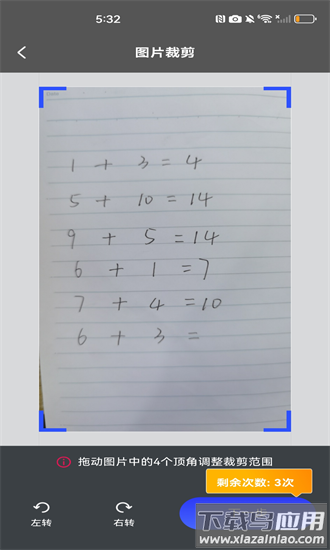 5:32
图片裁剪
1 + 3 = 4
5 + 10 = 14
9 + 5 = 14
6 + 1 = 7
7 + 4 = 10
6 + 3 =
拖动图片中的4个顶角调整裁剪范围
剩余次数: 3次
左转
右转
下载鸟应用
www.xiazainiao.com